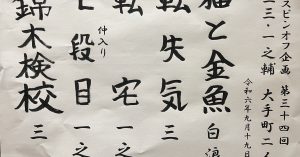 スピンオフ企画 第三十四回
三三・一之輔 大手町二人
令和六年九月十九日
猫と金魚 白浪
転失気 三
仲入り
転宅 一之
七段目 一之
錦木検校 三